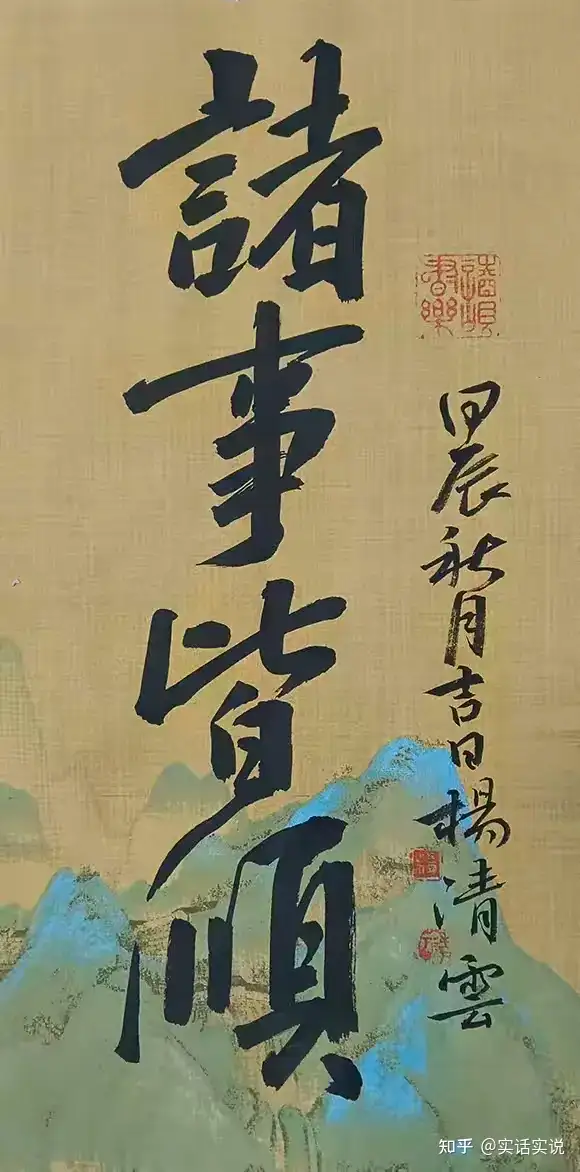 諸事皆順
甲辰秋月吉日楊清雲
知乎 @实话实说